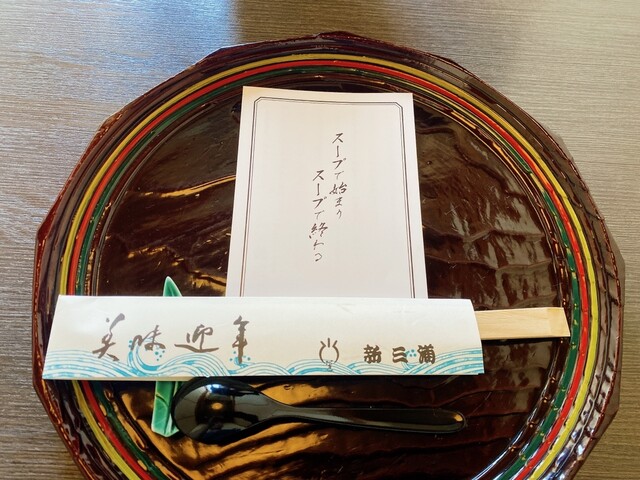 スープで始まり
スープで終わる
美味迎年
新三浦